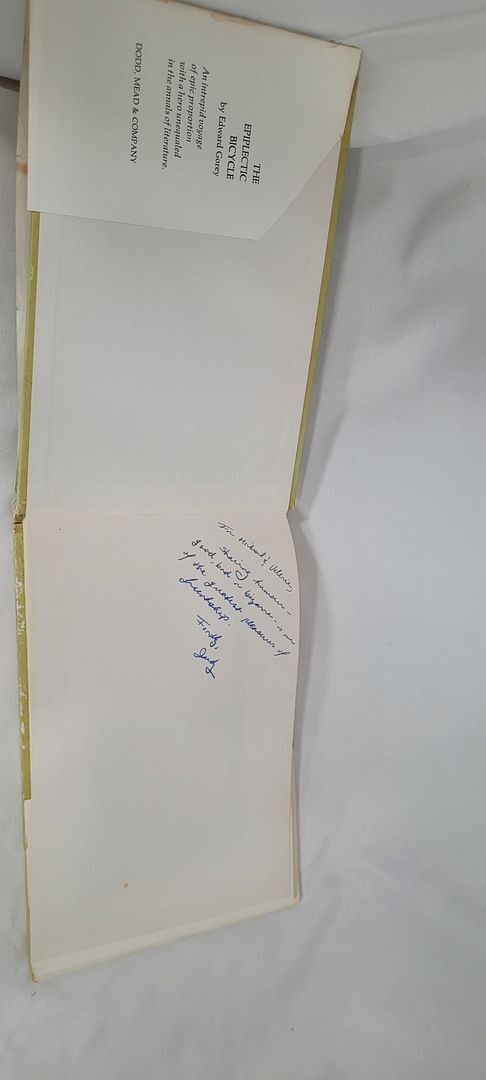 THE
EPIPLECTIC
BICYCLE
by Edward Gorey
An intrepid voyage
of epic proportion
with a hero unequaled
in the annals of literature.
DODD, MEAD & COMPANY
For Michael & Valerie,
Sharing humour -
good, bad or bizarre - is one
of the greatest pleasures of
friendship.
Fondly,
Judy